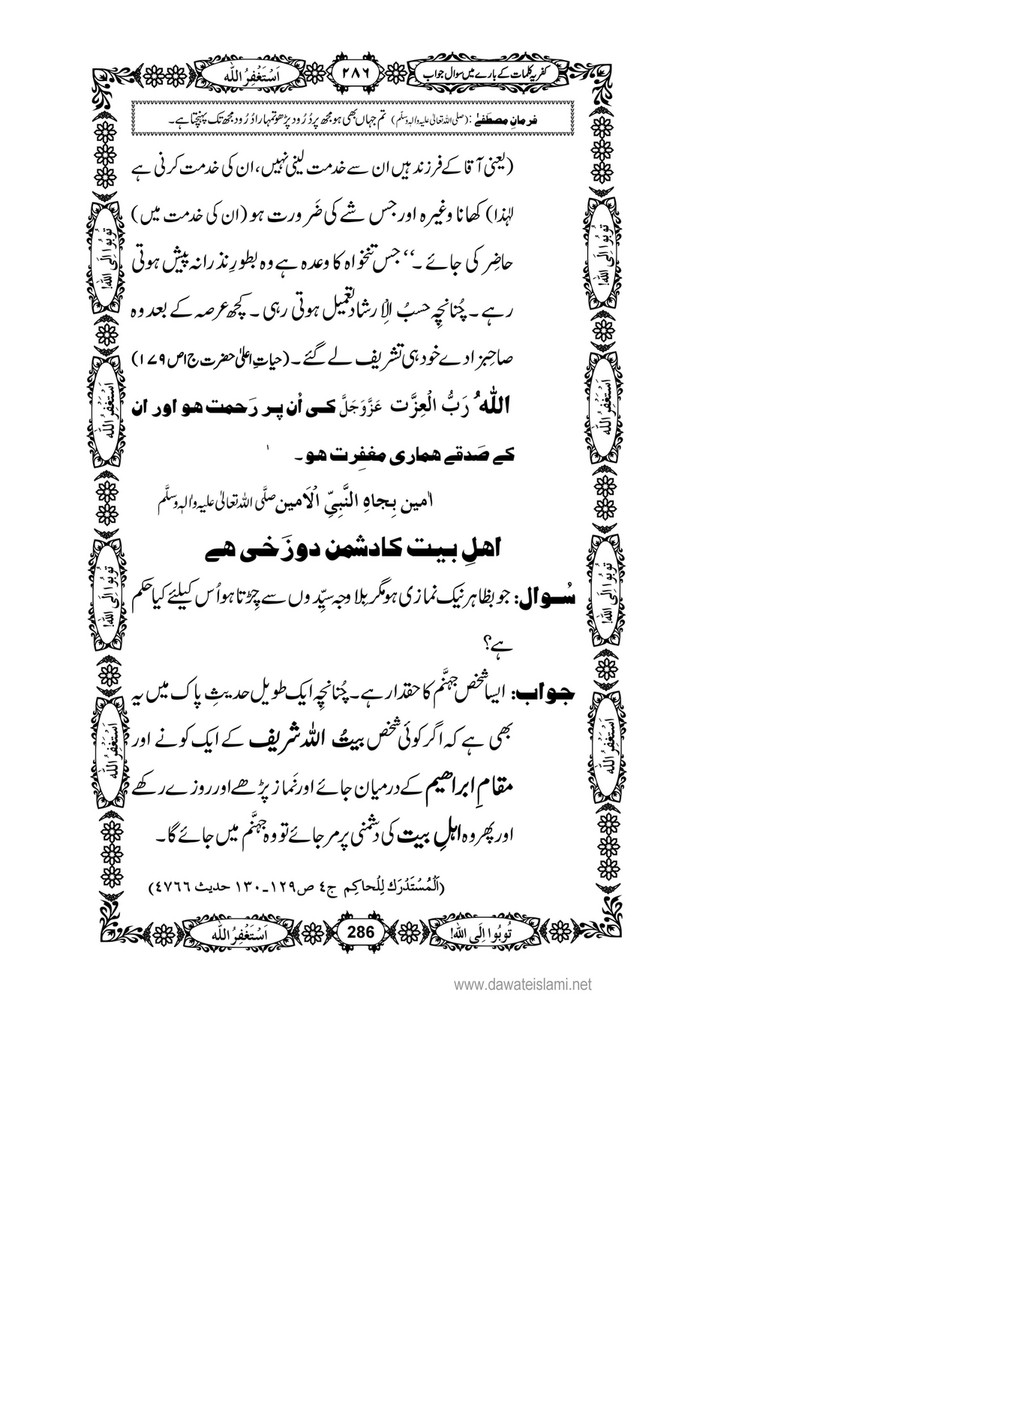 کفریہ کلمات کے بارے میں سوال جواب
۲۸۶
اَسْتَغْفِرُاللّٰه
فرمانِ مصطَفٰے : (صلی اللہ تعالیٰ علیہ واٰلہٖ وسلّم) تم جہاں بھی ہو مجھ پر دُرُود پڑھو تمہارا دُرُود مجھ تک پہنچتا ہے۔
(یعنی آقا کے فرزند ہیں ان سے خدمت لینی نہیں، ان کی خدمت کرنی ہے
لہٰذا) کھانا وغیرہ اور جس شے کی ضَرورت ہو (ان کی خدمت میں)
حاضِر کی جائے۔‘‘ جس تنخواہ کا وعدہ ہے وہ بطورِ نذرانہ پیش ہوتی
رہے۔ چُنانچِہ حسبُ الْاِرشاد تعمیل ہوتی رہی۔ کچھ عرصہ کے بعد وہ
صاحِبزادے خود ہی تشریف لے گئے۔ (حیاتِ اعلیٰ حضرت ج۱ص۱۷۹)
اللّٰهُ رَبُّ الْعِزَّت عَزَّوَجَلَّ کی اُن پر رَحمت هو اور ان
کے صَدقے هماری مغفِرت هو۔
اٰمین بِجاهِ النَّبِیِّ الْاَمین صلَّی اللہ تعالیٰ علیہ واٰلہٖ وسلَّم
اهلِ بیت کا دشمن دوزَخی هے
سُوال: جو بظاہر نیک نمازی ہو مگر بلا وجہ سیِّدوں سے چِڑتا ہو اُس کیلئے کیا حکم
ہے؟
جواب: ایسا شخص جہنَّم کا حقدار ہے۔ چُنانچِہ ایک طویل حدیثِ پاک میں یہ
بھی ہے کہ اگر کوئی شخص بیتُ اللہ شریف کے ایک کونے اور
مقامِ ابراھیم کے درمیان جائے اور نَماز پڑھے اور روزے رکھے
اور پھر وہ اہلِ بیت کی دشمنی پر مر جائے تو وہ جہنَّم میں جائے گا۔
(اَلْمُسْتَدْرَك لِلْحاکِم ج٤ ص۱۲۹۔۱۳۰ حدیث ٤٧٦٦)
تُوبُوا اِلَی اللّٰه!
اَسْتَغْفِرُاللّٰه
تُوبُوا اِلَی اللّٰه!
اَسْتَغْفِرُاللّٰه
تُوبُوا اِلَی اللّٰه!
اَسْتَغْفِرُاللّٰه
تُوبُوا اِلَی اللّٰه!
اَسْتَغْفِرُاللّٰه
تُوبُوا اِلَی اللّٰه!
286
اَسْتَغْفِرُاللّٰه
www.dawateislami.net